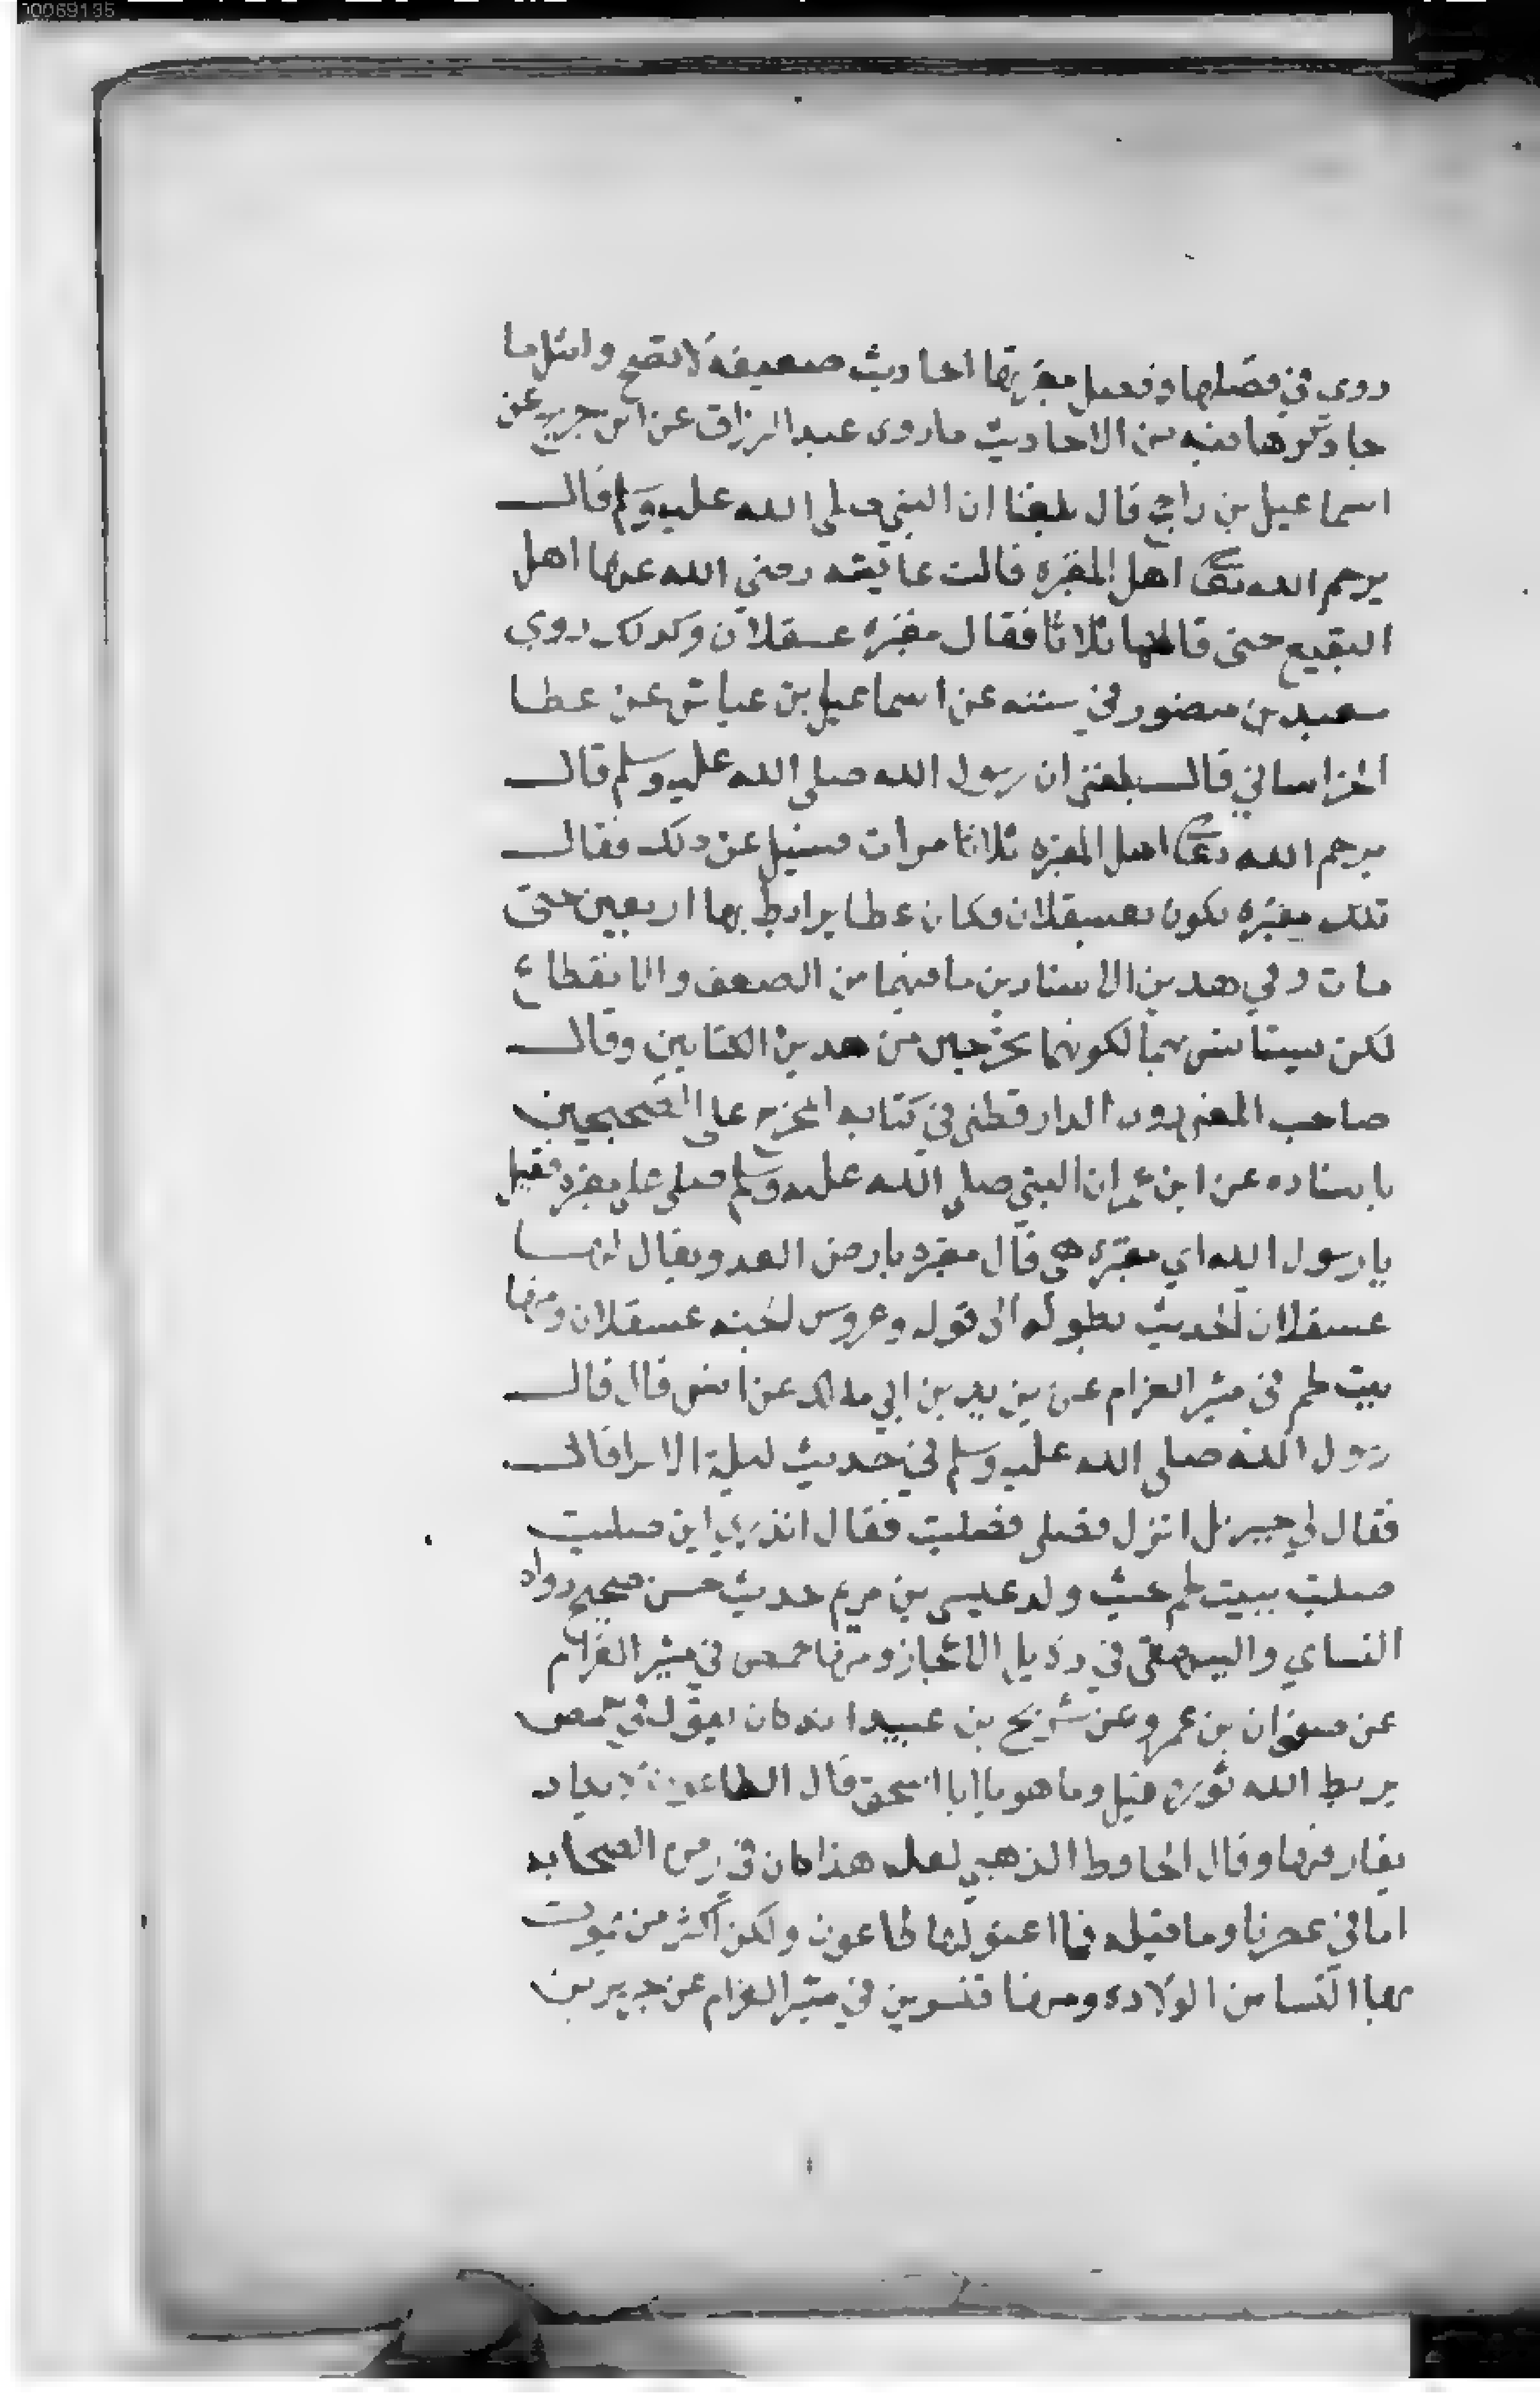 00069135
روي في فضلها وفضل مقبرتها احاديث ضعيفة لا تصح وامثل ما
جا ذكرها فيه من الاحاديث ما روى عبد الرزاق عن ابن جريج عن
اسماعيل بن رافع قال بلغنا ان النبي صلى الله عليه وسلم قال
يرحم الله تعالى اهل المقبرة قالت عائشة رضي الله عنها اهل
البقيع حتى قالها ثلاثا فقال مقبرة عسقلان وكذلك روي
سعيد بن منصور في سننه عن اسماعيل بن عياش عن عطا
الخراساني قال بلغني ان رسول الله صلى الله عليه وسلم قال
يرحم الله تعالى اهل المقبرة ثلاثا مرات فسئل عن ذلك فقال
تلك مقبرة تكون بعسقلان فكان عطا يرابط بها اربعين حتى
مات وفي هذين الاسنادين ما فيهما من الضعف والانقطاع
لكن يستانس بهما لكونهما مخرجين من هذين الكتابين وقال
صاحب المغني روى الدارقطني في كتابه المخرج على الصحيحين
باسناده عن ابن عمر ان النبي صلى الله عليه وسلم صلى على مقبرة فقيل
يا رسول الله اي مقبرة هي قال مقبرة بارض العدو يقال لها
عسقلان الحديث بطوله الى قوله وعروس الجنه عسقلان ومنها
بيت لحم في مثير الغرام عن يزيد بن ابي مالك عن انس قال قال
رسول الله صلى الله عليه وسلم في حديث ليلة الاسرا قال
فقال لي جبريل انزل فصلى فصليت فقال اتدري اين صليت
صليت ببيت لحم حيث ولد عيسى بن مريم حديث حسن صحيح رواه
النساي والبيهقي في دلايل الاعجاز ومنها حمص في مثير الغرام
عن صفوان بن عمرو عن شريح بن عبيد انه كان يقول في حمص
يربط الله ثوره قيل وما هو يا ابا اسحق قال الطاعون لا يكاد
يفارقها وقال الحافظ الذهبي لعله هذا كان في زمن الصحابه
اما في عصرنا وما قبله فما اعتو لها طاعون ولكن اكثر من يموت
بها النسا من الولادة ومنها قنسرين في مثير الغرام عن جرير بن